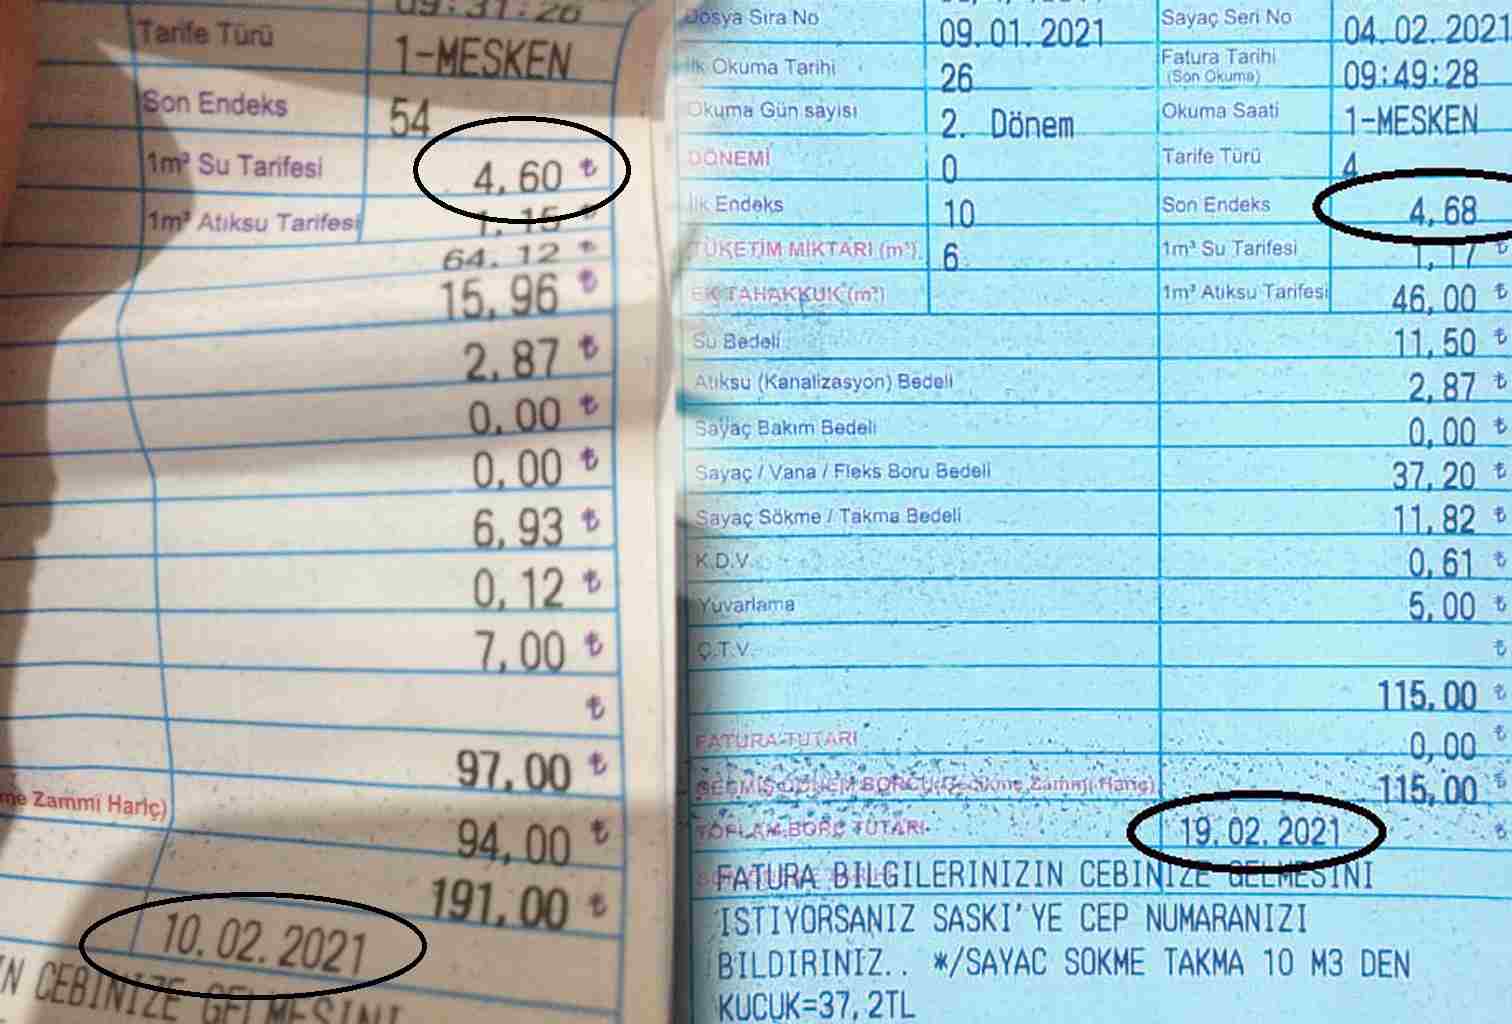 09:31:26
Tarife Türü 1-MESKEN
Son Endeks 54
1m³ Su Tarifesi 4,60 ₺
1m³ Atıksu Tarifesi 1,15 ₺
64.12 ₺
15,96 ₺
2,87 ₺
0,00 ₺
0,00 ₺
6,93 ₺
0,12 ₺
7,00 ₺
₺
97,00 ₺
me Zammı Hariç)
94,00 ₺
191,00 ₺
10.02.2021
N CEBINIZE GELMESINI
Dosya Sıra No 09.01.2021 Sayaç Seri No 04.02.2021
İlk Okuma Tarihi 26 Fatura Tarihi
(Son Okuma) 09:49:28
Okuma Gün sayısı 2. Dönem Okuma Saati 1-MESKEN
DÖNEMİ 0 Tarife Türü 4
İlk Endeks 10 Son Endeks 4,68
TÜKETİM MİKTARI (m³) 6 1m³ Su Tarifesi 1,17 ₺
EK TAHAKKUK (m³) 1m³ Atıksu Tarifesi 46,00 ₺
Su Bedeli 11,50 ₺
Atıksu (Kanalizasyon) Bedeli 2,87 ₺
Sayaç Bakım Bedeli 0,00 ₺
Sayaç / Vana / Fleks Boru Bedeli 37,20 ₺
Sayaç Sökme / Takma Bedeli 11,82 ₺
K.D.V. 0,61 ₺
Yuvarlama 5,00 ₺
Ç.T.V. ₺
115,00 ₺
FATURA TUTARI 0,00 ₺
GEÇMİŞ DÖNEM BORCU (Gecikme Zammı Hariç) 115,00
TOPLAM BORÇ TUTARI 19.02.2021 ₺
FATURA BILGILERINIZIN CEBINIZE GELMESINI
ISTIYORSANIZ SASKI'YE CEP NUMARANIZI
BILDIRINIZ.. */SAYAC SOKME TAKMA 10 M3 DEN
KUCUK=37,2TL